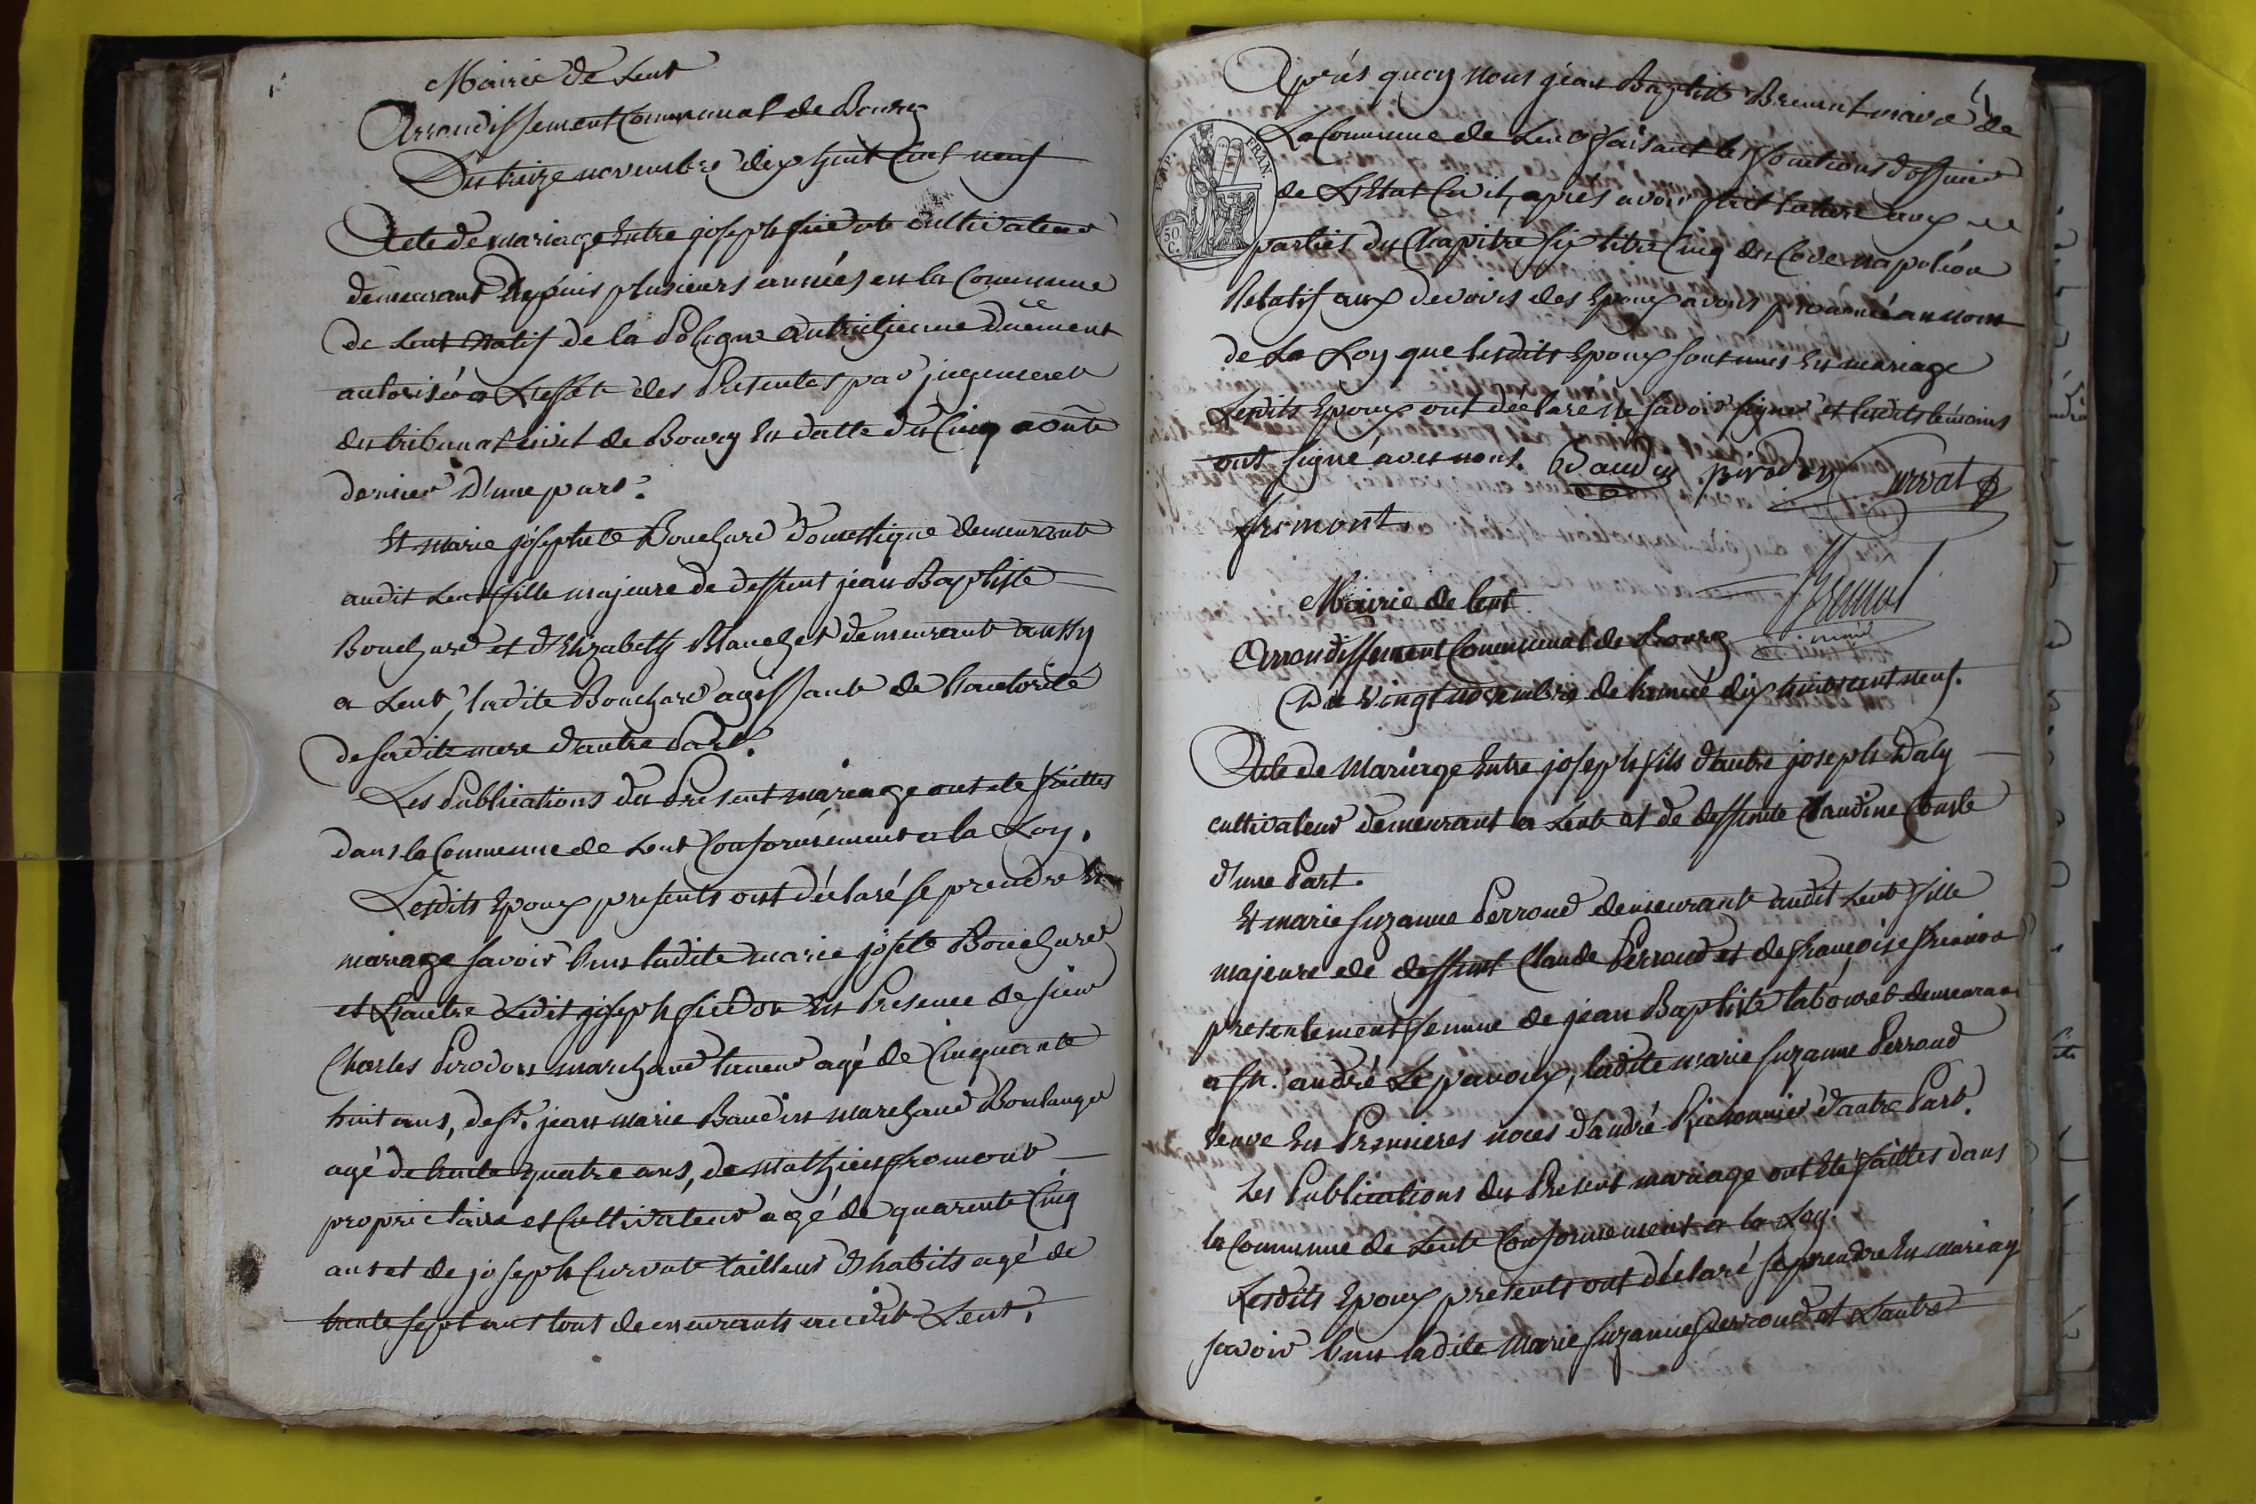 Mairie de Lent
Arrondissement Communal de Bourg
Du treize novembre dix huit Cent neuf
Acte de mariage Entre joseph fiedor cultivateur
demeurant Depuis plusieurs années en la Commune
de Lent Natif de la Pologne Autrichienne Duëment
autorisé a L'effet des Presentes par jugement
du tribunal civil de Bourg En datte du Cinq aoûte
dernier D'une part.
Et marie josephete Bouchard Domestique demeurante
audit Lent fille majeure de deffunt jean Baptiste
Bouchard et d'Elizabeth Blanchet demeurant aussy
a Lent, ladite Bouchard agissante de l'autorité
de sadite mere d'autre Part.
Les Publications du Present mariage ont eté faittes
dans la Commune de Lent Conformément a la Loy.
Lesdits Epoux presents ont déclaré se prendre En
mariage savoir l'un ladite marie josete Bouchard
et L'autre Ledit joseph fiedor En Presence de sieur
Charles Perodon marchand taneur agé de Cinquante
huit ans, de sr. jean marie Baudin marchand Boulanger
agé de trente quatre ans, de Mathieu fromont
proprietaire et Cultivateur agé de quarente Cinq
ans et de joseph Curvat tailleur d'habits agé de
trente sept ans tous demeurants audit Lent.
Après quoy nous jean Baptiste Brevent maire de
La Commune de Lent faisant les fonctions d'officier
de L'Etat Civil, après avoir fait lecture aux
parties du Chapitre six titre Cinq du Code napoléon
Relatif aux devoirs des Epoux avons prononcé au nom
de La Loy que lesdits Epoux sont unis En mariage
Lesdits Epoux ont déclaré ne savoir signer et lesdits témoins
ont signé avec nous. Baudin perodon Curvat
fromont
maire
FRAN.
50
C.
Mairie de lent
Arrondissement Communal de Bourg
Du Vingt novembre de l'année dix huit cent neuf.
Acte de Mariage Entre joseph fils d'autre joseph Daly
cultivateur demeurant a Lent et de deffunte Claudine
d'une Part.
Et marie suzanne Perroud demeurante audit Lent fille
majeure de deffunt Claude Perroud et de françoise
presentement femme de jean Baptiste labouret demeurant
a st. andré Le panoux, ladite marie suzanne Perroud
veuve En Premieres noces d'andré d'autre Part.
Les Publications du Present mariage ont Eté faittes dans
la Commune de Lent Conformément a la Loy.
Lesdits Epoux présents ont déclaré se prendre En mariage
savoir l'un ladite Marie suzanne Perroud et L'autre